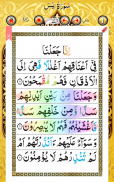 سورة يس
إِنَّا جَعَلْنَا
فِىٓ أَعْنَٰقِهِمْ أَغْلَٰلًا فَهِىَ إِلَى
ٱلْأَذْقَانِ فَهُم مُّقْمَحُونَ
وَجَعَلْنَا مِنۢ بَيْنِ أَيْدِيهِمْ
سَدًّا وَمِنْ خَلْفِهِمْ سَدًّا
فَأَغْشَيْنَٰهُمْ فَهُمْ لَا يُبْصِرُونَ
وَسَوَآءٌ عَلَيْهِمْ ءَأَنذَرْتَهُمْ أَمْ
لَمْ تُنذِرْهُمْ لَا يُؤْمِنُونَ